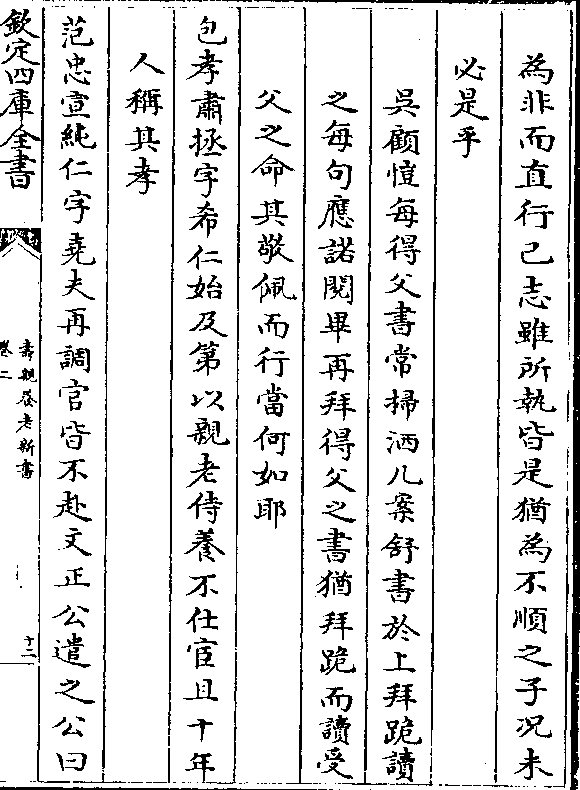 為非而直行己志雖所執皆是猶為不順之子况未
必是乎
吳顧愷每得父書常掃洒几案舒書於上拜跪讀
之每句應諾閱畢再拜得父之書猶拜跪而讀受
父之命其敬佩而行當何如耶
包孝肅拯字希仁始及第以親老侍養不仕宦且十年
人稱其孝
范忠宣純仁字堯夫再調官皆不赴文正公遣之公曰
欽定四庫全書
壽親養老新書
卷二
十二